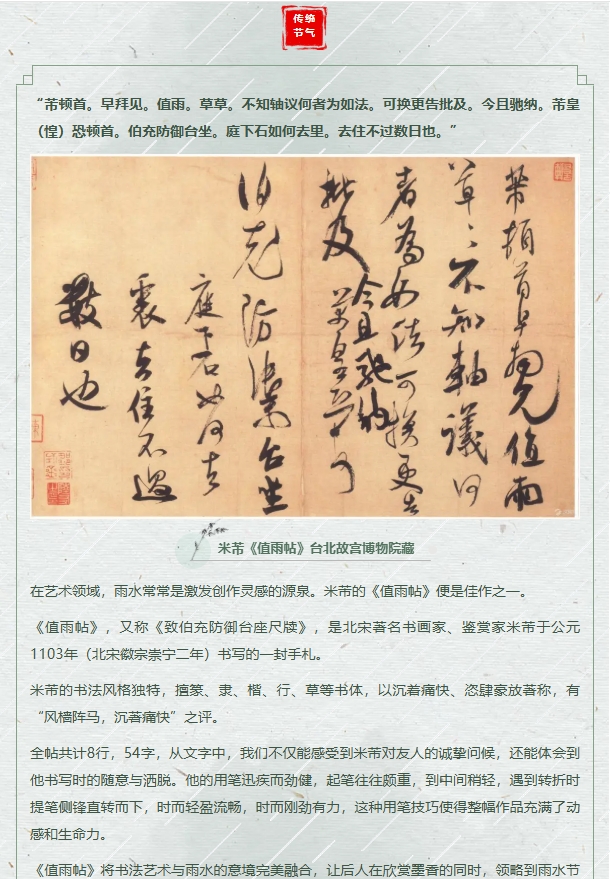 传统
节气
“芾顿首。早拜见。值雨。草草。不知轴议何者为如法。可换更告批及。今且驰纳。芾皇
（惶）恐顿首。伯充防御台坐。庭下石如何去里。去住不过数日也。”
芾頓首早拜見值雨
草々不知軸議何
者為如法可換更告
批及今且馳納
芾皇恐頓首
伯充防禦台坐
庭下石如何去
裏去住不過
數日也
米芾《值雨帖》台北故宫博物院藏
在艺术领域，雨水常常是激发创作灵感的源泉。米芾的《值雨帖》便是佳作之一。
《值雨帖》，又称《致伯充防御台座尺牍》，是北宋著名书画家、鉴赏家米芾于公元
1103年（北宋徽宗崇宁二年）书写的一封手札。
米芾的书法风格独特，擅篆、隶、楷、行、草等书体，以沉着痛快、恣肆豪放著称，有
“风樯阵马，沉著痛快”之评。
全帖共计8行，54字，从文字中，我们不仅能感受到米芾对友人的诚挚问候，还能体会到
他书写时的随意与洒脱。他的用笔迅疾而劲健，起笔往往颇重，到中间稍轻，遇到转折时
提笔侧锋直转而下，时而轻盈流畅，时而刚劲有力，这种用笔技巧使得整幅作品充满了动
感和生命力。
《值雨帖》将书法艺术与雨水的意境完美融合，让后人在欣赏墨香的同时，领略到雨水节